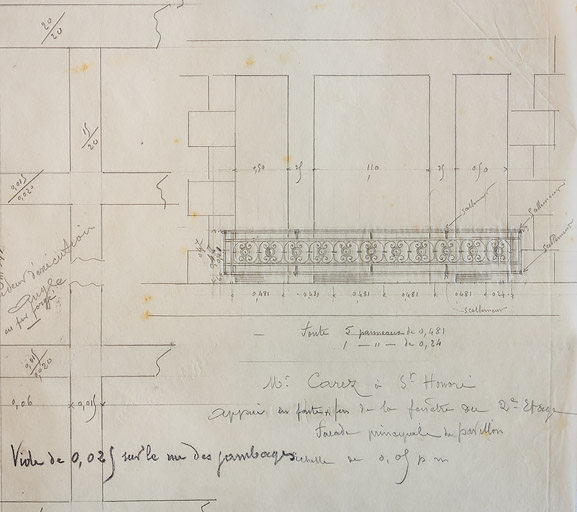 20/20
15/20
0,015/0,020
0,50 25 1,10 25 0,50
scellement
scellement
scellement
0,481 0,481 0,481 0,481 0,481 0,24
scellement
d'exécution
Angle
en fer forgé
0,015/0,020
0,06 0,015
Fonte 5 panneaux de 0,481
1 — " — de 0,24
Mr Carez à St Honoré
appui en fonte & fer de la fenêtre du 2e Etage
Façade principale du pavillon
Vide de 0,025 sur le nu des jambages
Echelle de 0,05 p m